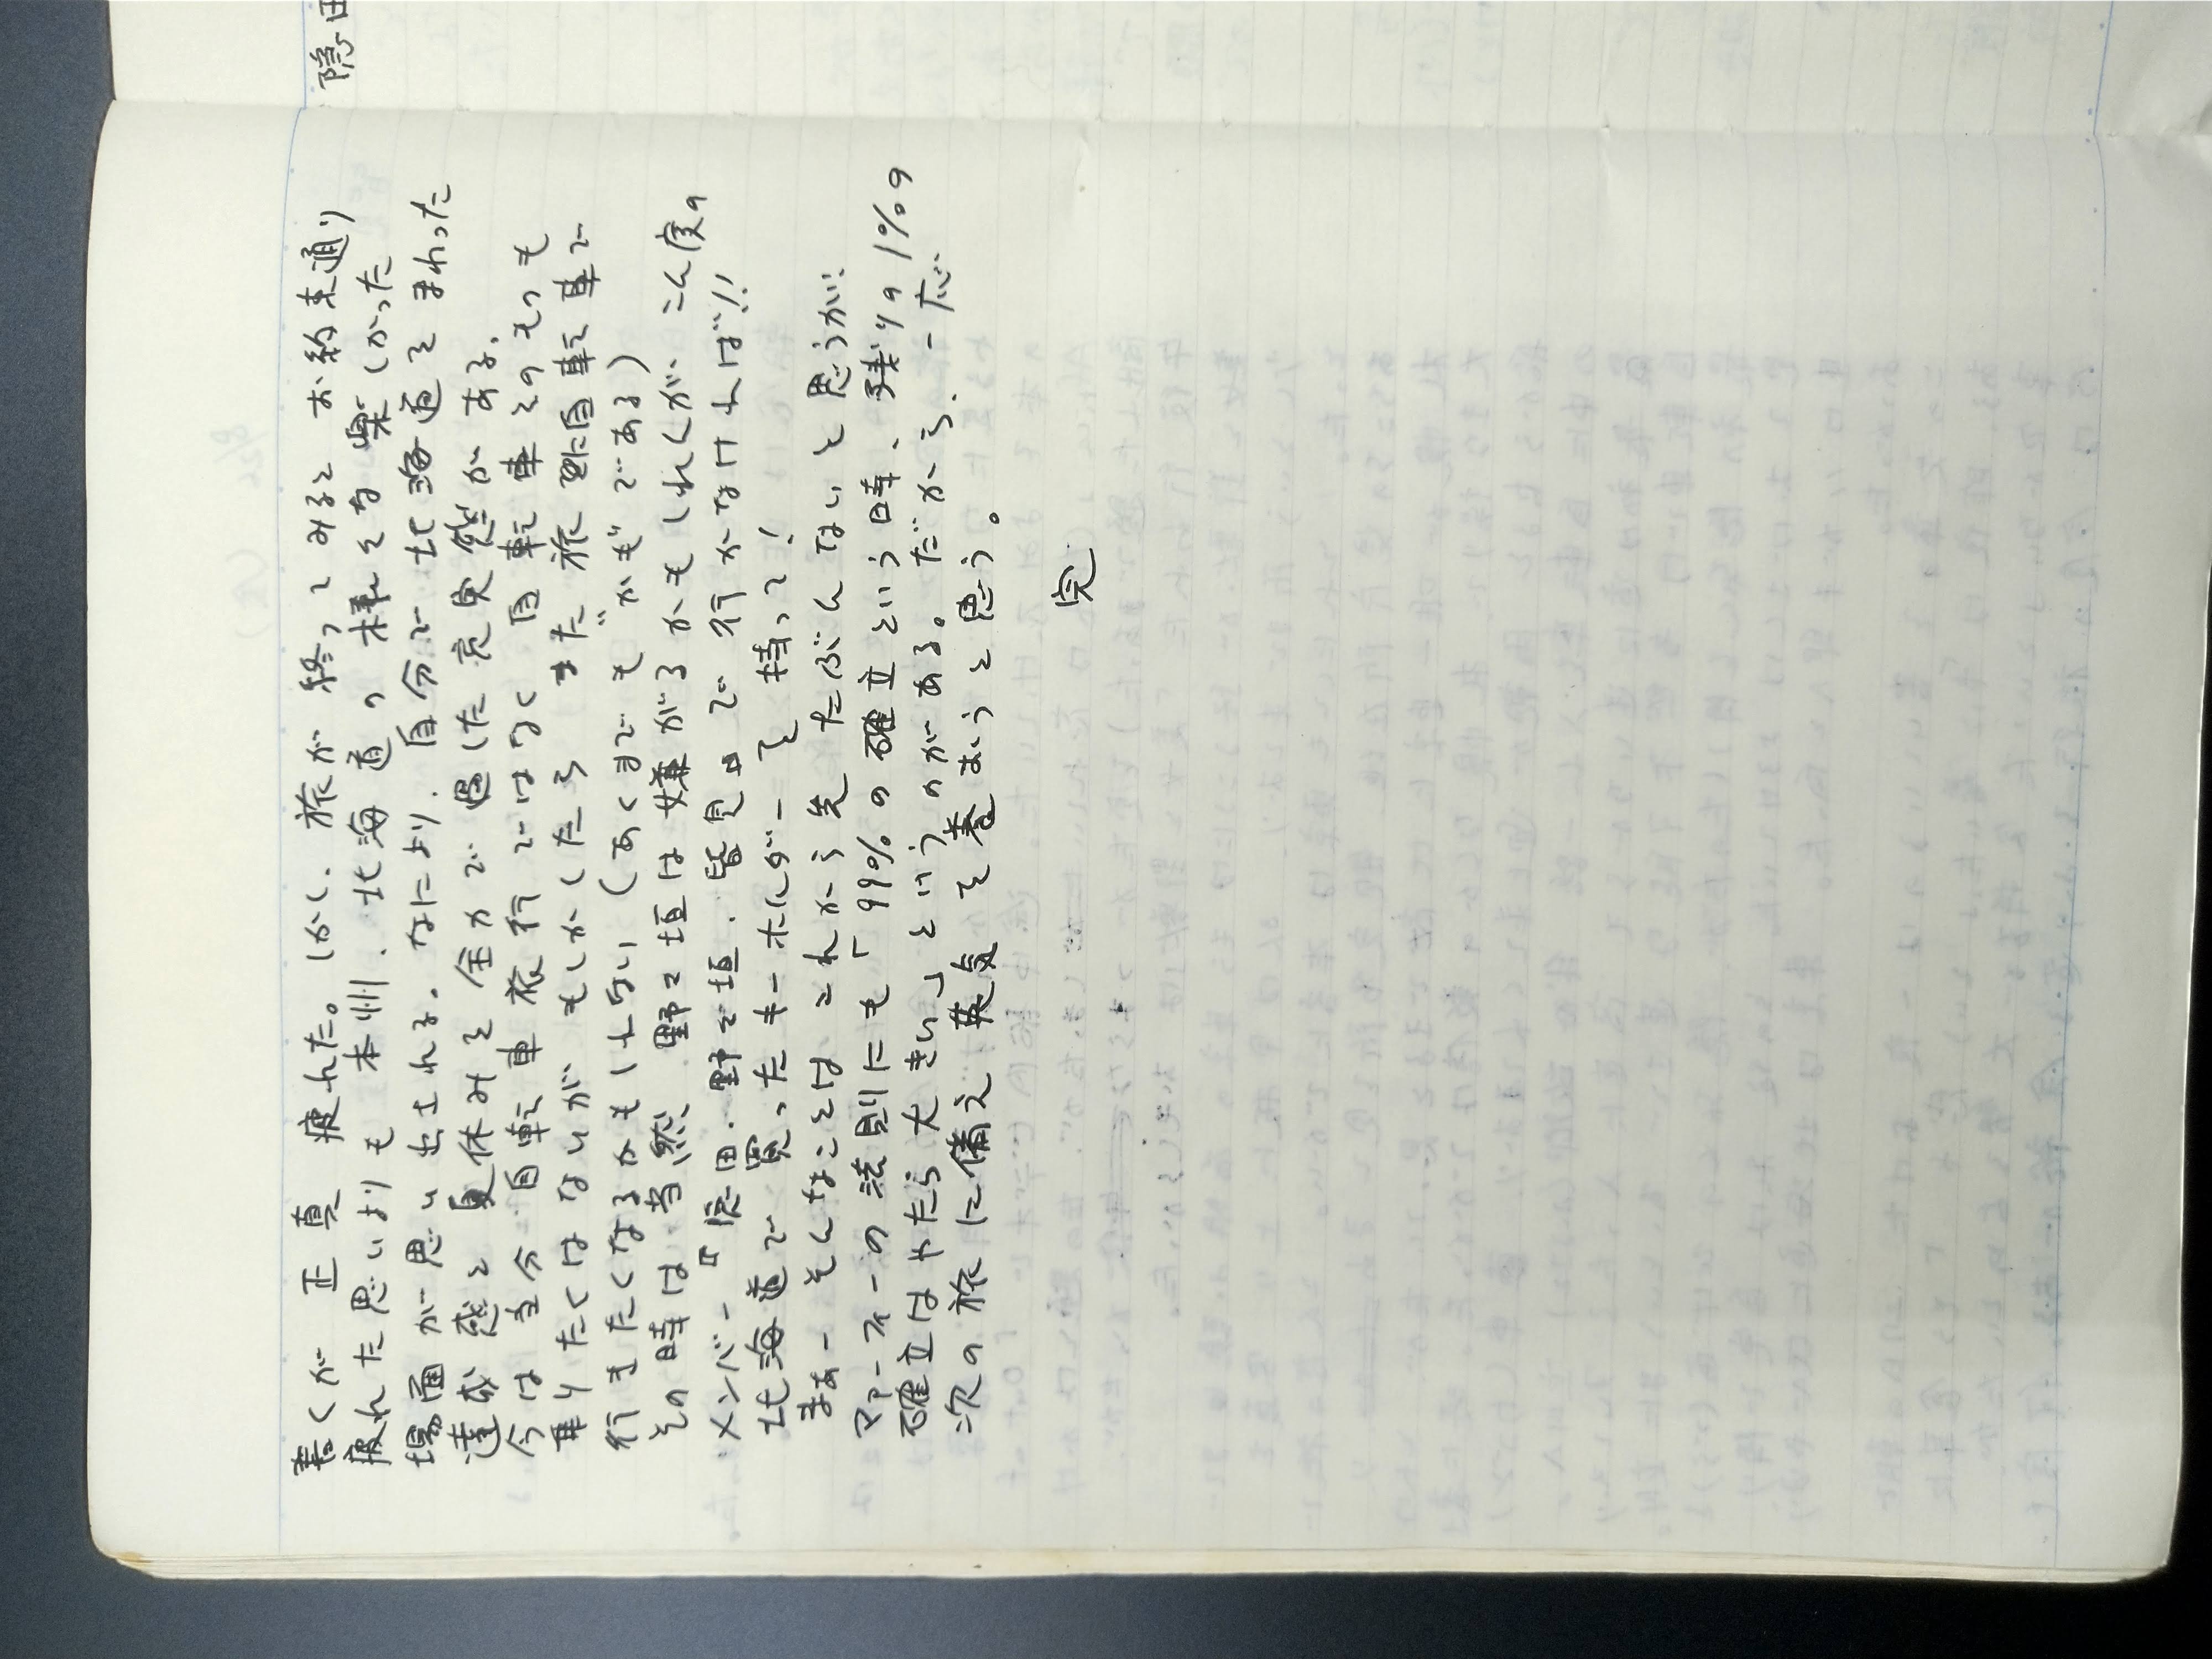 書くが 正真 疲れた。しかし、旅が終ってみると お約束通り
疲れた思いよりも 本州、北海道の様々な楽しかった
場面が思い出される。なにより、自分で北海道をまわった
達成感と 夏休みを全力で過した充実感がある。
今は当分自転車旅行ではなく自転車そのものも
乗りたくはないが もしかしたら まだ 旅に自転車で
行きたくなるかもしれない (あくまでも かも である)
その時は当然、野々垣は嫌がるかもしれんが、こん度の
メンバー『隠田、野々垣、皆見』で 行かなければ!!
北海道で買ったキーホルダーを持って!
まあー そんなことは これから先 たぶんないと思うが…
マァーフィーの法則にも「99%の確立という時、残りの1%の
確立はやたら大きい」というのがある。だから、一応
次の旅に備え 英気を養おうと思う。
完
隠田